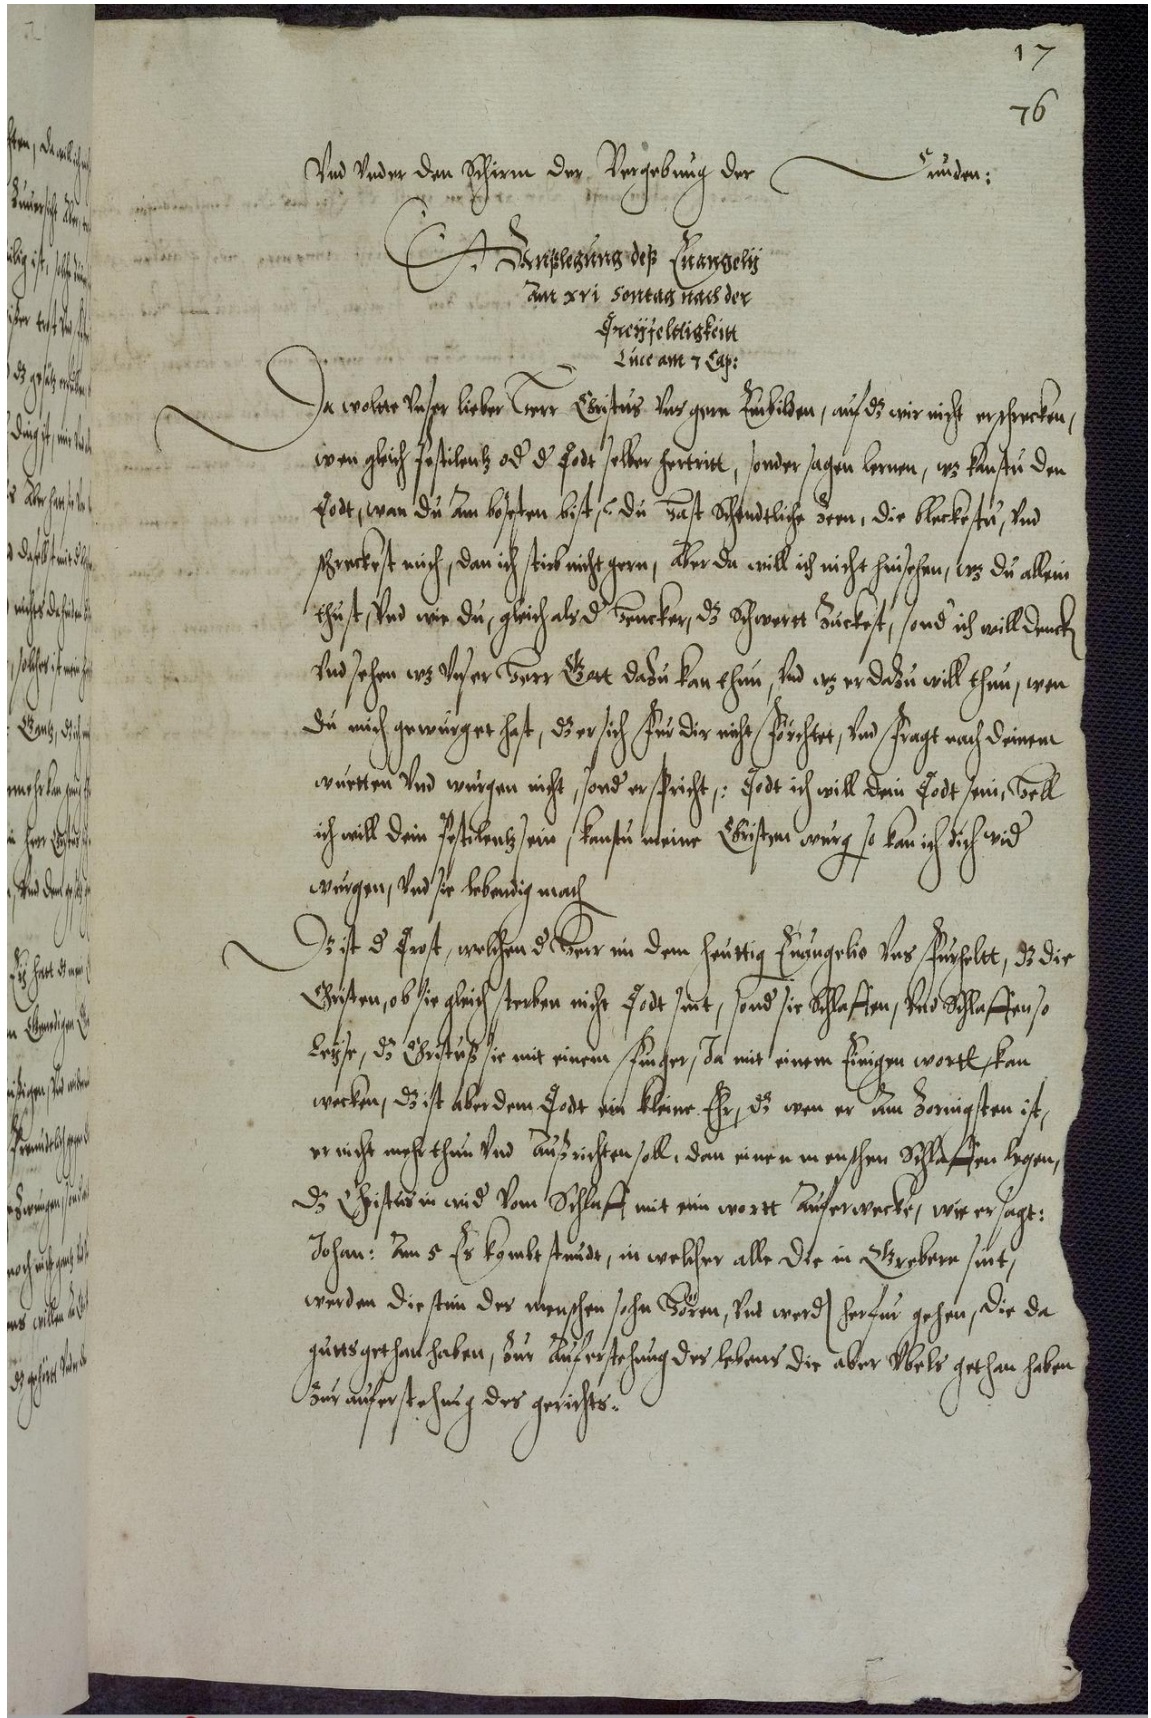 17
76
Vnd vnder den Schirm der Vergebung der Sunden:
Außlegung deß Euangelij
Am xvi Sontag nach der
Dreyfeltigkeitt
Luce am 7 Cap:
Da wolte vnser lieber Herr Christus vns gern Einbilden, auf dz wir nicht erschrecken,
wen gleich pestilentz od d Todt selber hertritt, sonder sagen lernen, wz kanstu den
Todt, wan du am bösesten bist, du hast Schendtliche Zeen, die bleckestu, vnd
schreckest mich, dan ich stirb nicht gern, Aber da will ich nicht hinsehen, wz du allein
thust, vnd wie du, gleich als d Hencker, dz Schwertt Zuckest, sond ich will denck
vnd sehen wz vnser Herr Gott dazu kan thun, vnd wz er dazu will thun, wen
du mich gewurget hast, dz er sich fur dir nicht förchtet, vnd fragt nach deinem
wuetten vnd wurgen nicht, sond er spricht,: Todt ich will dein Todt sein, Hell
ich will dein Pestilentz sein, kanstu meine Christen wurg so kan ich dich wid
wurgen, vnd sie lebendig mach
Dz ist d Trost, welchen d Herr in dem heuttig Euangelio vns furheltt, dz die
Christen, ob sie gleich sterben nicht Todt sint, sond sie Schlaffen, vnd Schlaffen so
leyse, dz Christuß sie mit einem finger, Ja mit einem Einigen wortt, kan
wecken, dz ist aber dem Todt ein kleine Ehr, dz wen er am Zornigsten ist,
er nicht mehr thun vnd Außrichten soll, dan einen menschen Schlaffen legen,
dz Christus in wid vom Schlaff mit eim wortt Auferwecke, wie er sagt:
Johan: Am 5 Es kombt stundt, in welcher alle die in Grebern sint,
werden die stim des menschen sohn Hören, vnd werd herfur gehen, die da
gutts gethan haben, Zur Auferstehung des lebens die aber vbels gethan haben
Zur auferstehung des gerichts.